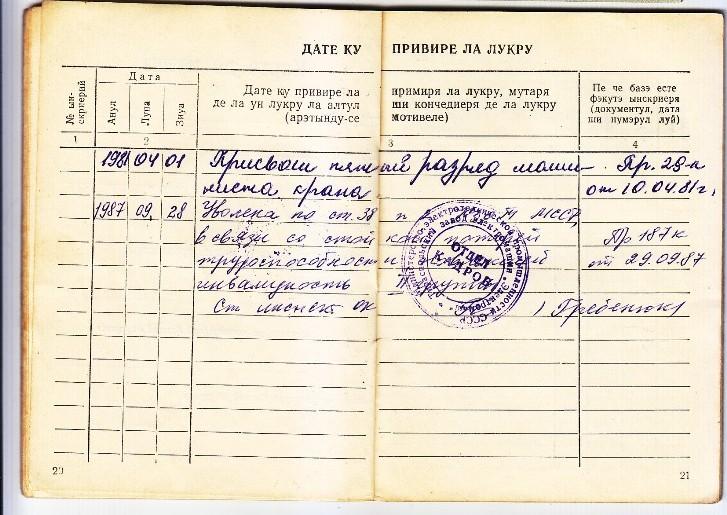 ДАТЕ КУ ПРИВИРЕ ЛА ЛУКРУ
№ ын-
скриерий
Дата
Анул
Луна
Зиуа
Дате ку привире ла примиря ла лукру, мутаря
де ла ун лукру ла алтул ши кончедиеря де ла лукру
(арэтынду-се мотивеле)
Пе че базэ есте
фэкутэ ынскриеря
(документул, дата
ши нумэрул луй)
1 2 3 4
1981 04 01 Присвоен пятый разряд маши- Пр. 29-к
ниста крана от 10.04.81г.
1987 09 28 Уволена по ст. 38 п МССР,
в связи со стой Пр 187к
трудоспособност от 29.09.87
инвалидность
Ст инспект ок Гребенюк
Министерство электротехнической промышленности СССР
завод
ОТДЕЛ
КАДРОВ
20
21